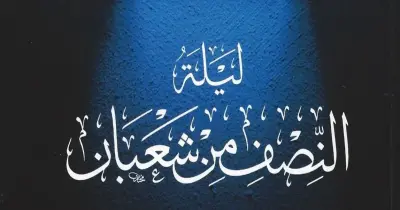 ليلةُ
النِّصفِ مِن شَعْبَان